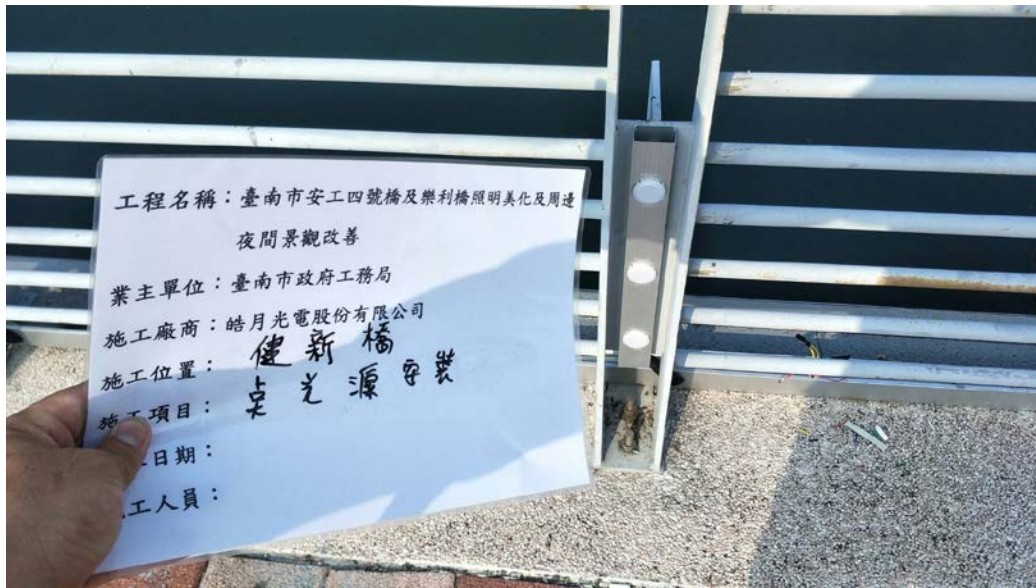 工程名稱：臺南市安工四號橋及樂利橋照明美化及周邊
夜間景觀改善
業主單位：臺南市政府工務局
施工廠商：皓月光電股份有限公司
施工位置：健新橋
施工項目：点光源安裝
日期：
工人員：